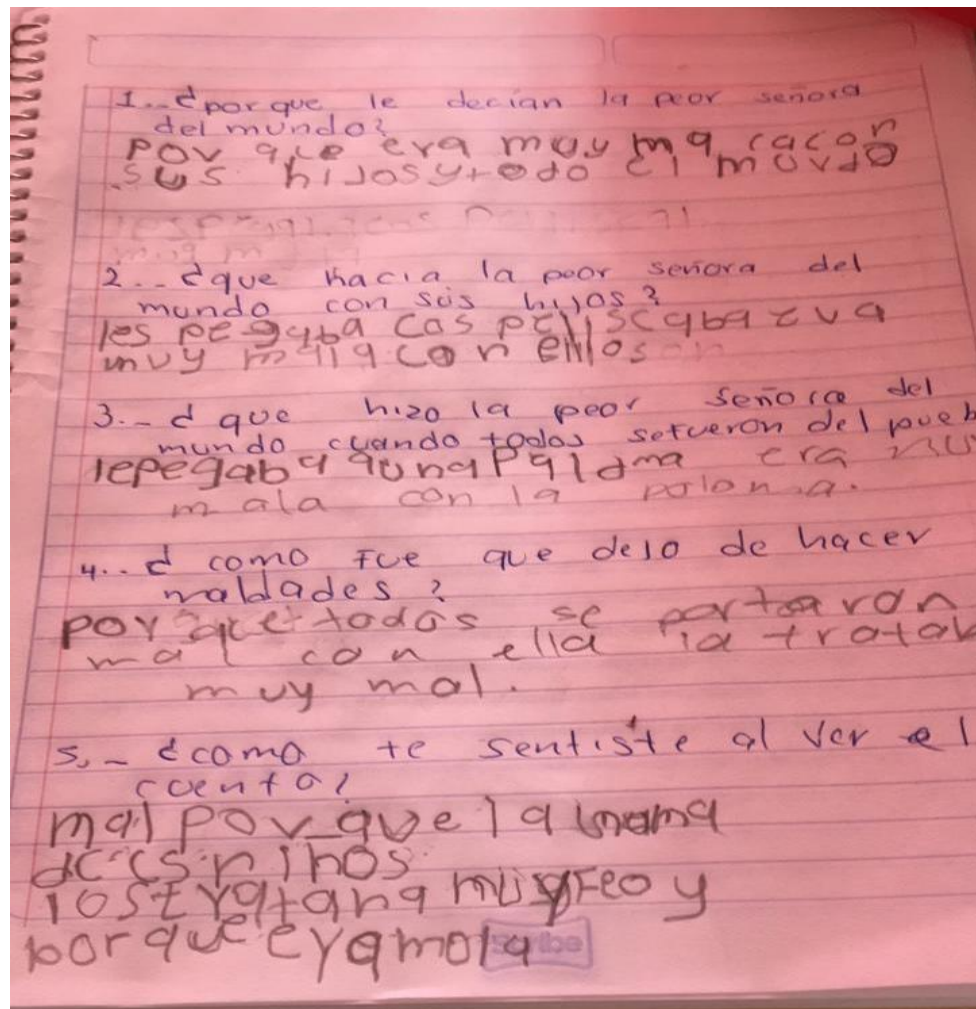 1.. ¿por que le decían la peor señora
del mundo?
por que era muy ma cacon
sus hijos y todo el mundo
2.. ¿que hacia la peor señora del
mundo con sus hijos?
les pegaba cos pelliscaba eva
muy mala con ellos
3.- ¿ que hizo la peor señora del
mundo cuando todos sefueron del pueb
lepegaba auna Paldma era mu
mala con la paloma.
4.. ¿ como Fue que dejo de hacer
maldades ?
por que todos se portaron
mal con ella la tratab
muy mal.
5.- ¿como te sentiste al ver el
cuento?
mal por que la mama
de es niños
los tratana muy Feo y
por que eya mola
Scribe